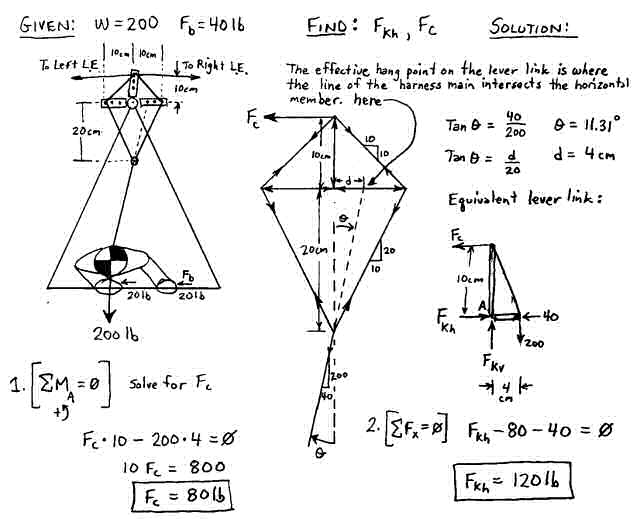 GIVEN: W = 200 Fb = 40 lb
FIND: FKh, Fc
SOLUTION:
10cm 10cm
To Left L.E. To Right L.E.
10cm
20cm
Fb
20 lb 20 lb
200 lb
The effective hang point on the lever link is where
the line of the harness main intersects the horizontal
member. here
Fc
10
10
10cm
d
θ
20cm
20
10
200
40
θ
Tan θ = 40/200 θ = 11.31°
Tan θ = d/20 d = 4 cm
Equivalent lever link:
Fc
10cm
A
FKh
40
200
FKV
4
cm
1. [ΣMA = 0] Solve for Fc
+
Fc · 10 − 200 · 4 = 0
10 Fc = 800
Fc = 80 lb
2. [ΣFx = 0] FKh − 80 − 40 = 0
FKh = 120 lb